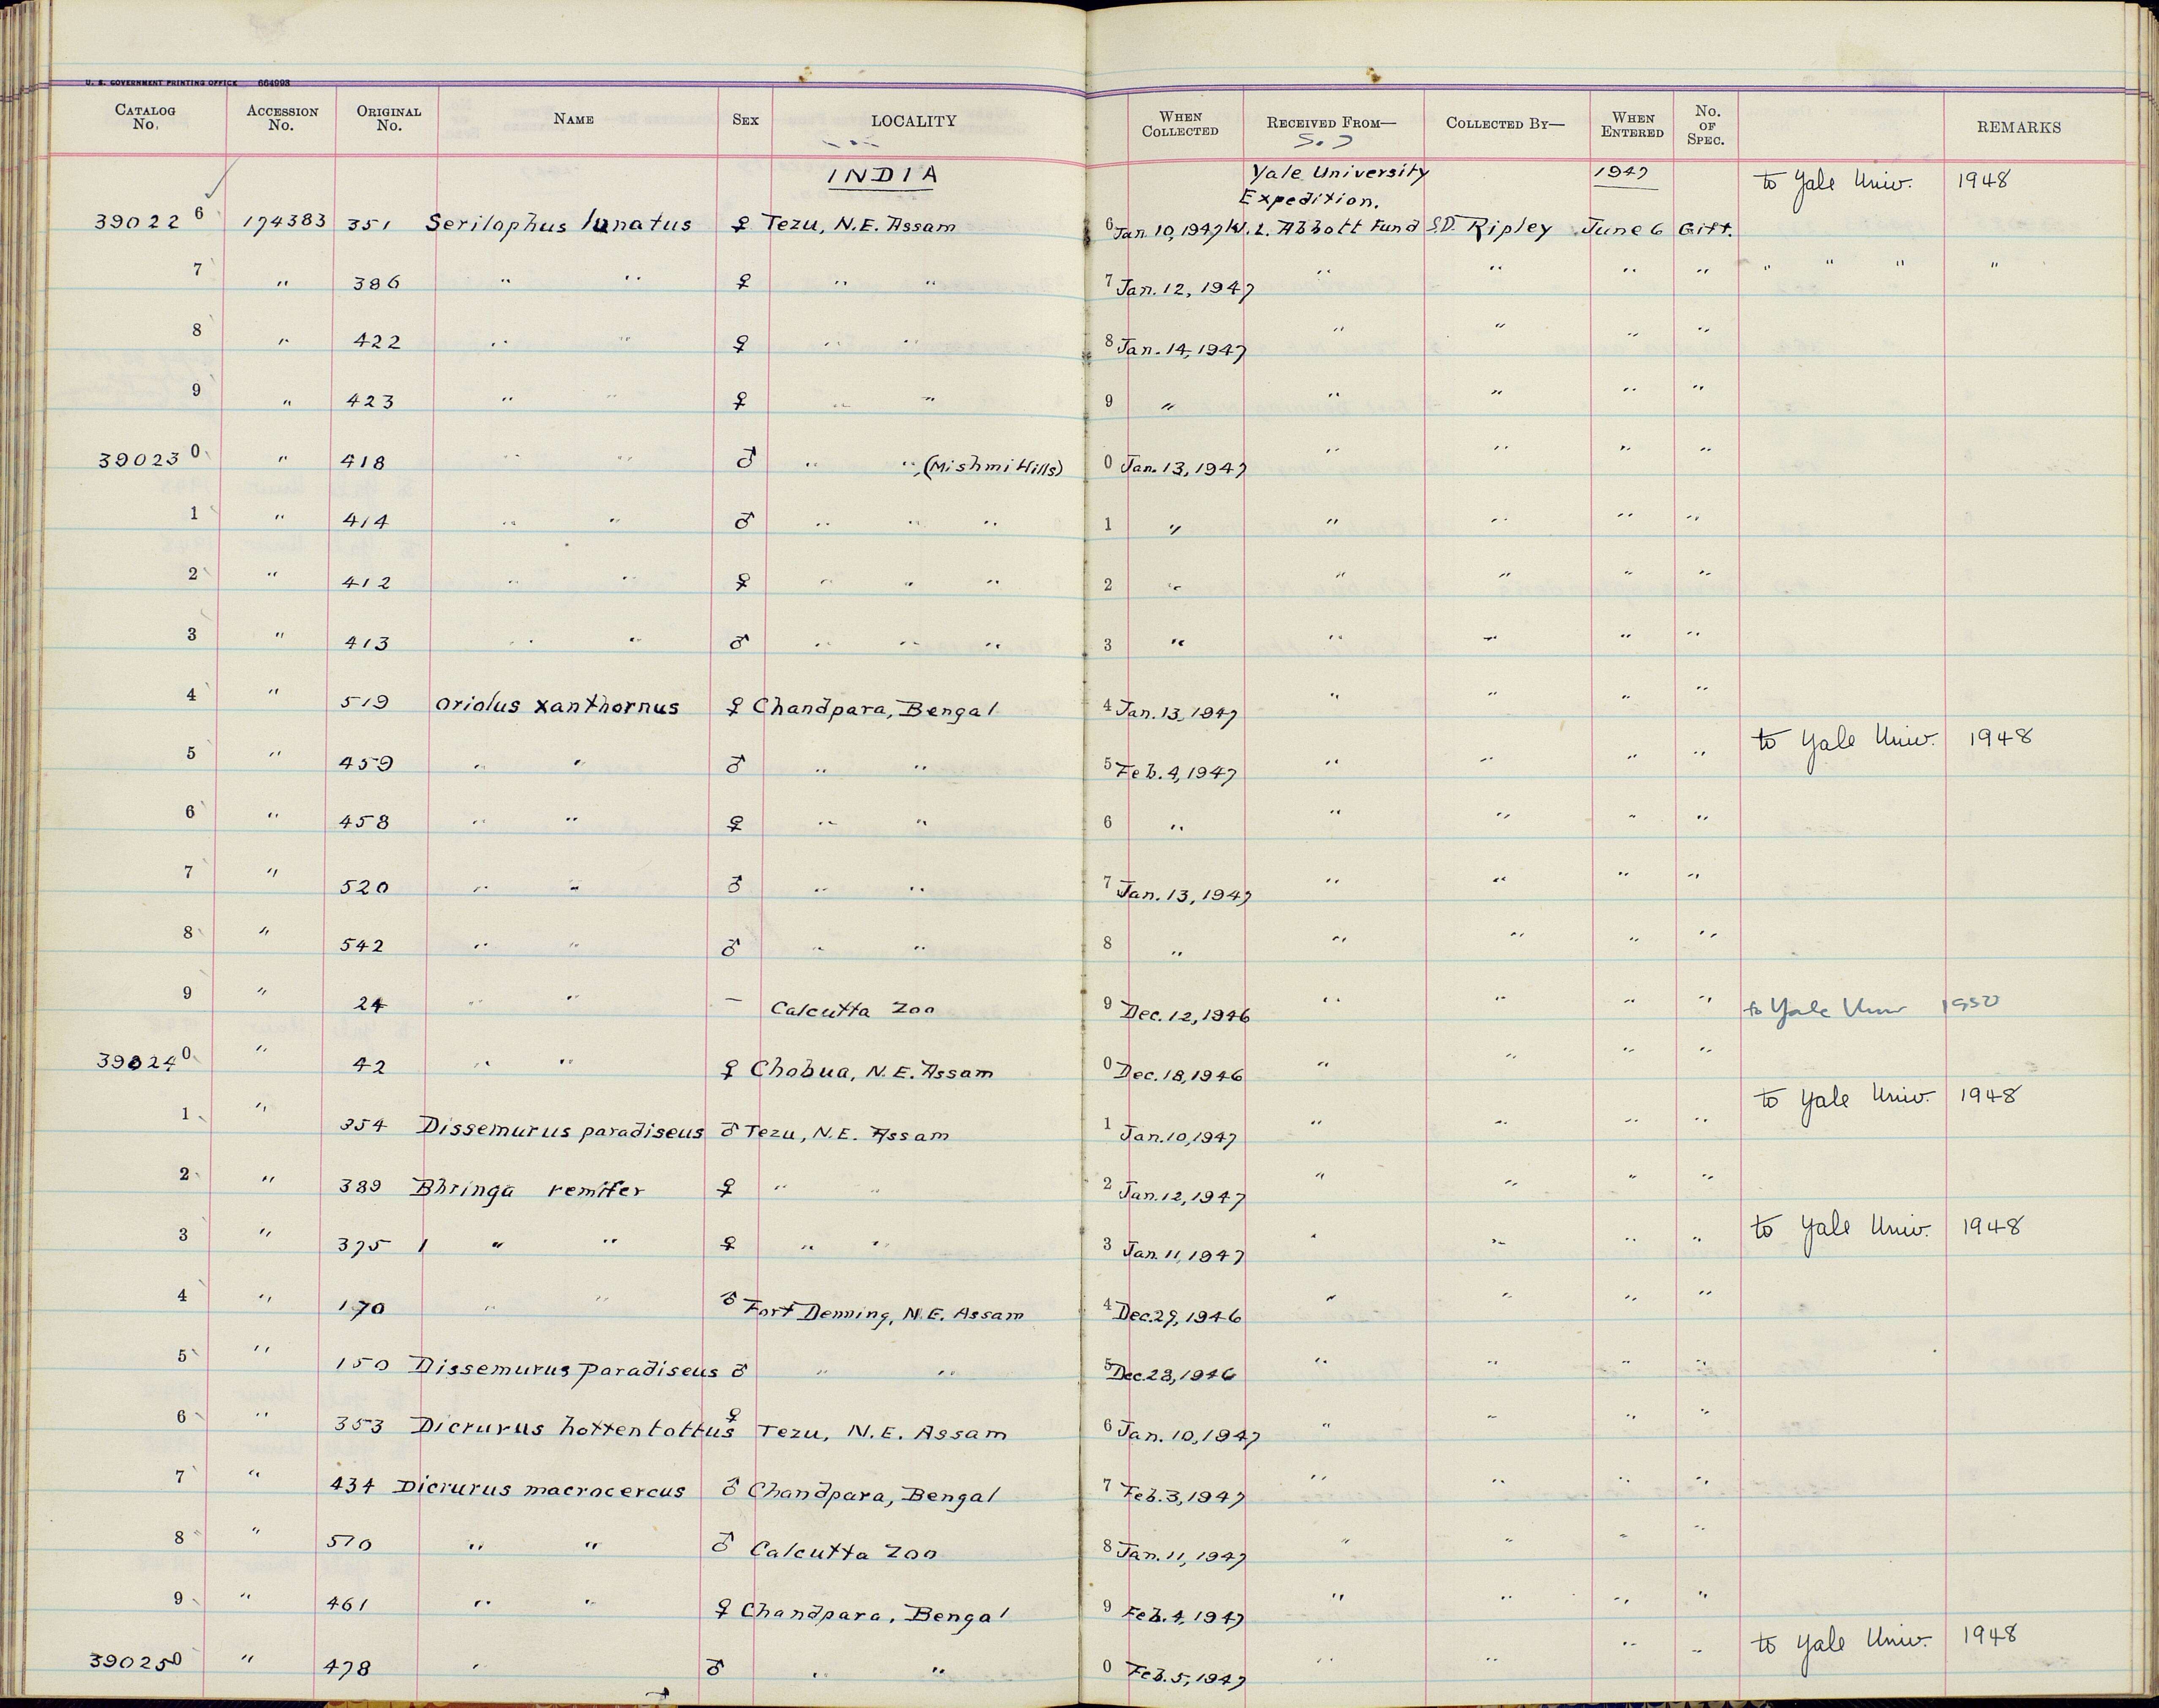 U. S. GOVERNMENT PRINTING OFFICE 664993
CATALOG No. ACCESSION No. ORIGINAL No. NAME SEX LOCALITY WHEN COLLECTED RECEIVED FROM— COLLECTED BY— WHEN ENTERED NO. OF SPEC. REMARKS
INDIA Yale University Expedition. 1947 to Yale Univ. 1948
39022 6 174383 351 Serilophus lunatus ♀ Tezu, N.E. Assam 6 Jan. 10, 1947 W. L. Abbott Fund S.D. Ripley June 6 Gift.
7 " 386 " " ♀ " " 7 Jan. 12, 1947 " " " " " " " "
8 " 422 " " ♀ " " 8 Jan. 14, 1947 " " " "
9 " 423 " " ♀ " " 9 " " " " "
39023 0 " 418 " " ♂ " ", (Mishmi Hills) 0 Jan. 13, 1947 " " " "
1 " 414 " " ♂ " " " 1 " " " " "
2 " 412 " " ♀ " " " 2 " " " " "
3 " 413 " " ♂ " " " 3 " " " " "
4 " 519 Oriolus xanthornus ♀ Chandpara, Bengal 4 Jan. 13, 1947 " " " "
5 " 459 " " ♂ " " 5 Feb. 4, 1947 " " " " to Yale Univ. 1948
6 " 458 " " ♀ " " 6 " " " " "
7 " 520 " " ♂ " " 7 Jan. 13, 1947 " " " "
8 " 542 " " ♂ " " 8 " " " " "
9 " 24 " " — Calcutta Zoo 9 Dec. 12, 1946 " " " " to Yale Univ 1950
39024 0 " 42 " " ♀ Chobua, N.E. Assam 0 Dec. 18, 1946 " " " "
1 " 354 Dissemurus paradiseus ♂ Tezu, N.E. Assam 1 Jan. 10, 1947 " " " " to Yale Univ. 1948
2 " 389 Bhringa remifer ♀ " " 2 Jan. 12, 1947 " " " "
3 " 375 " " ♀ " " 3 Jan. 11, 1947 " " " " to Yale Univ. 1948
4 " 170 " " ♂ Fort Denning, N.E. Assam 4 Dec. 29, 1946 " " " "
5 " 150 Dissemurus paradiseus ♂ " " 5 Dec. 28, 1946 " " " "
6 " 353 Dicrurus hottentottus ♀ Tezu, N.E. Assam 6 Jan. 10, 1947 " " " "
7 " 434 Dicrurus macrocercus ♂ Chandpara, Bengal 7 Feb. 3, 1947 " " " "
8 " 510 " " ♂ Calcutta Zoo 8 Jan. 11, 1947 " " " "
9 " 461 " " ♀ Chandpara, Bengal 9 Feb. 4, 1947 " " " "
39025 0 " 478 " ♂ " " 0 Feb. 5, 1947 " " " " to Yale Univ. 1948